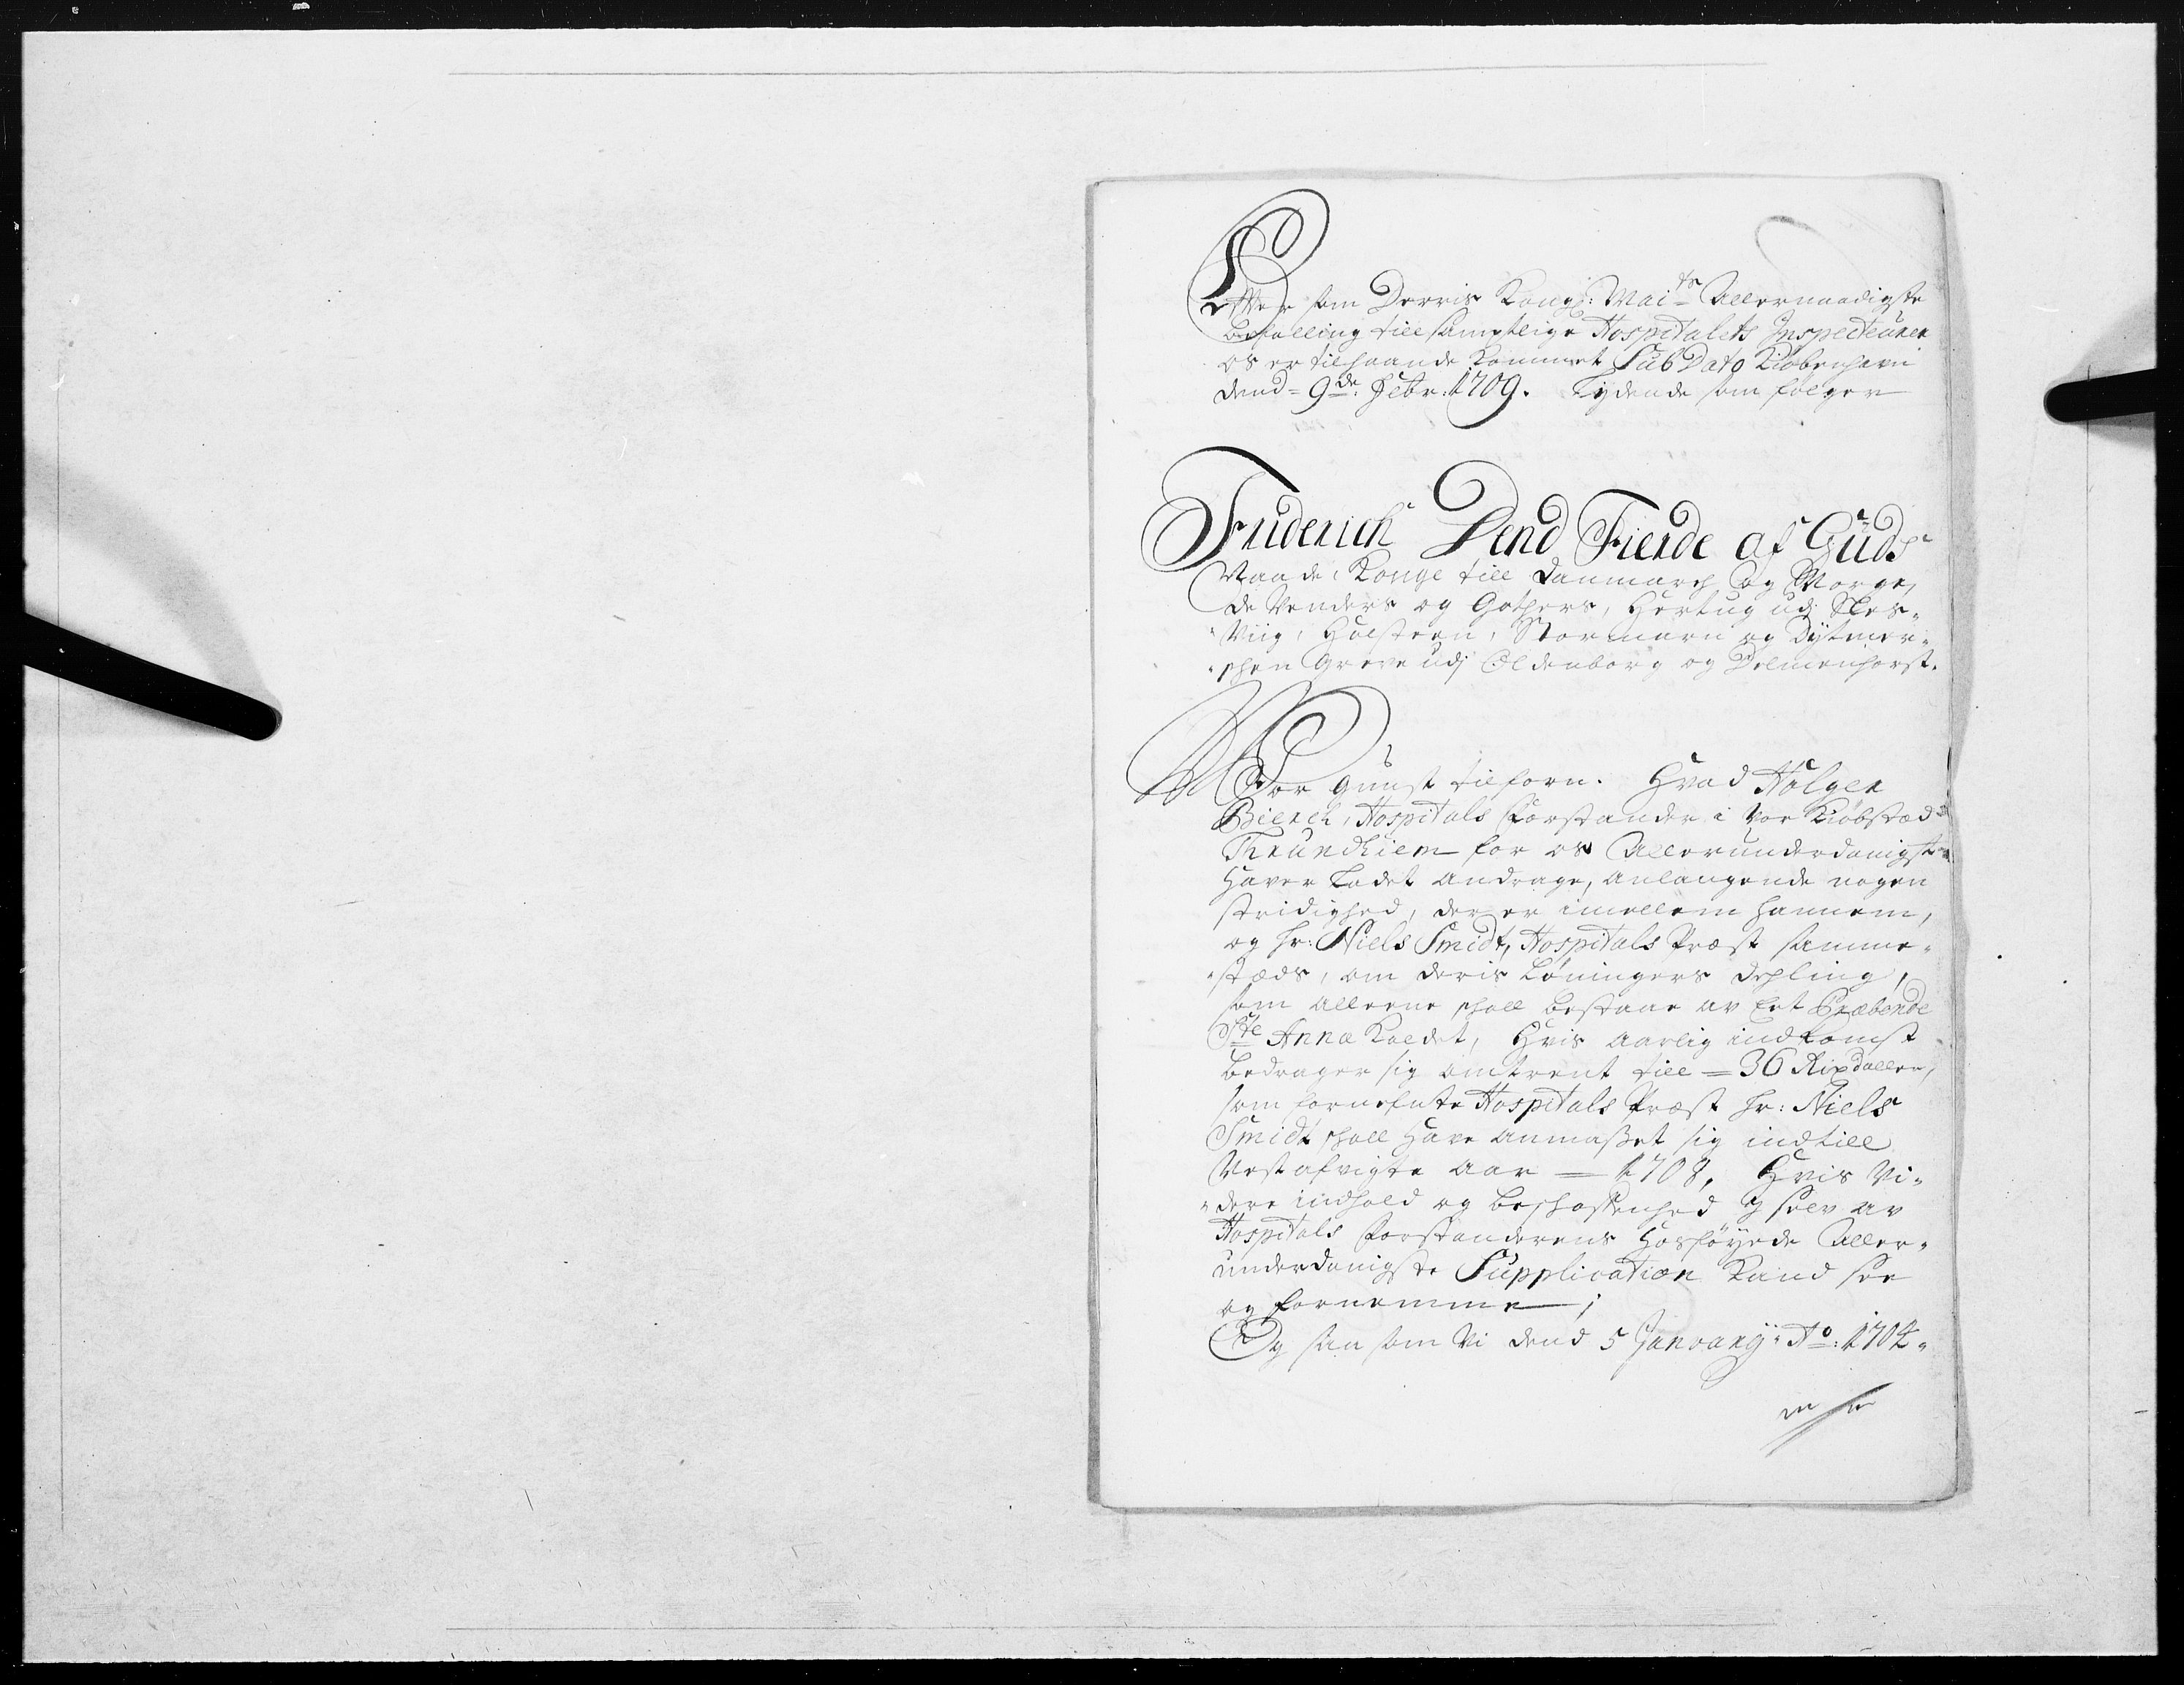 Efftersom Derris Kongl: Mai^ts Allernaadigste
befalling till samptlige Hospitalets Inspecteurer
os er tilhaande kommet Sub Dato Kiøbenhavn
dend 9de Febr: 1709. Lydende som følger
Friderich Dend Fierde af Guds
Naade, Konge till Danmarch og Norge,
de Venders og Gothers, Hertug udj Sles-
viig, Holsteen, Stormarn og Dytmer-
schen Greve udj Oldenborg og Delmenhorst.
Vor Gunst tilforn. Hvad Holger
Bierch, Hospitals Forstander i Vor Kiøbstæd
Thrundhiem for os Allerunderdanigst
haver ladet andrage, anlangende nogen
stridighed, der er imellem hannem,
og Hr: Niels Smidt, Hospitals Præst samme-
stæds, om deris Lønningers dehling,
som alleene schall bestaae av Eet Præbende
Ste Anna kaldet, Hvis aarlig indkomst
bedrager sig omtrent till 36 Rixdaller,
som fornefnte Hospitals Præst Hr: Niels
Smidt schall have anmaßet sig indtill
Nest afvigte Aar 1708, Hvis Vi-
dere indhold og beschaffenhed I selv av
Hospitals Forstanderens hosføyede Aller-
underdanigste Supplication kand see
og fornemme;
Og saasom Vi dend 5 January Ao: 1704